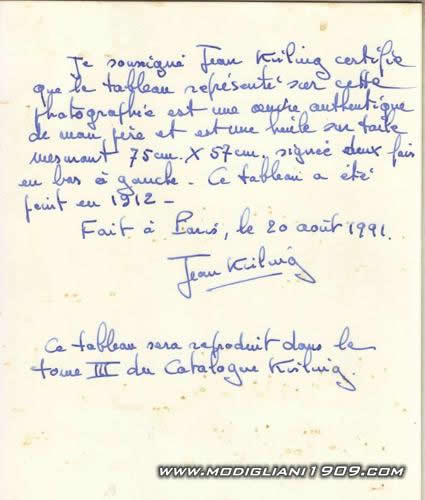 Je soussigné Jean Kisling certifie
que le tableau représenté sur cette
photographie est une œuvre authentique
de mon père et est une huile sur toile
mesurant 75cm. X 57cm. signée deux fois
en bas à gauche. Ce tableau a été
peint en 1912 -
Fait à Paris, le 20 août 1991.
Jean Kisling
Ce tableau sera reproduit dans le
tome III du Catalogue Kisling.
WWW.MODIGLIANI1909.COM